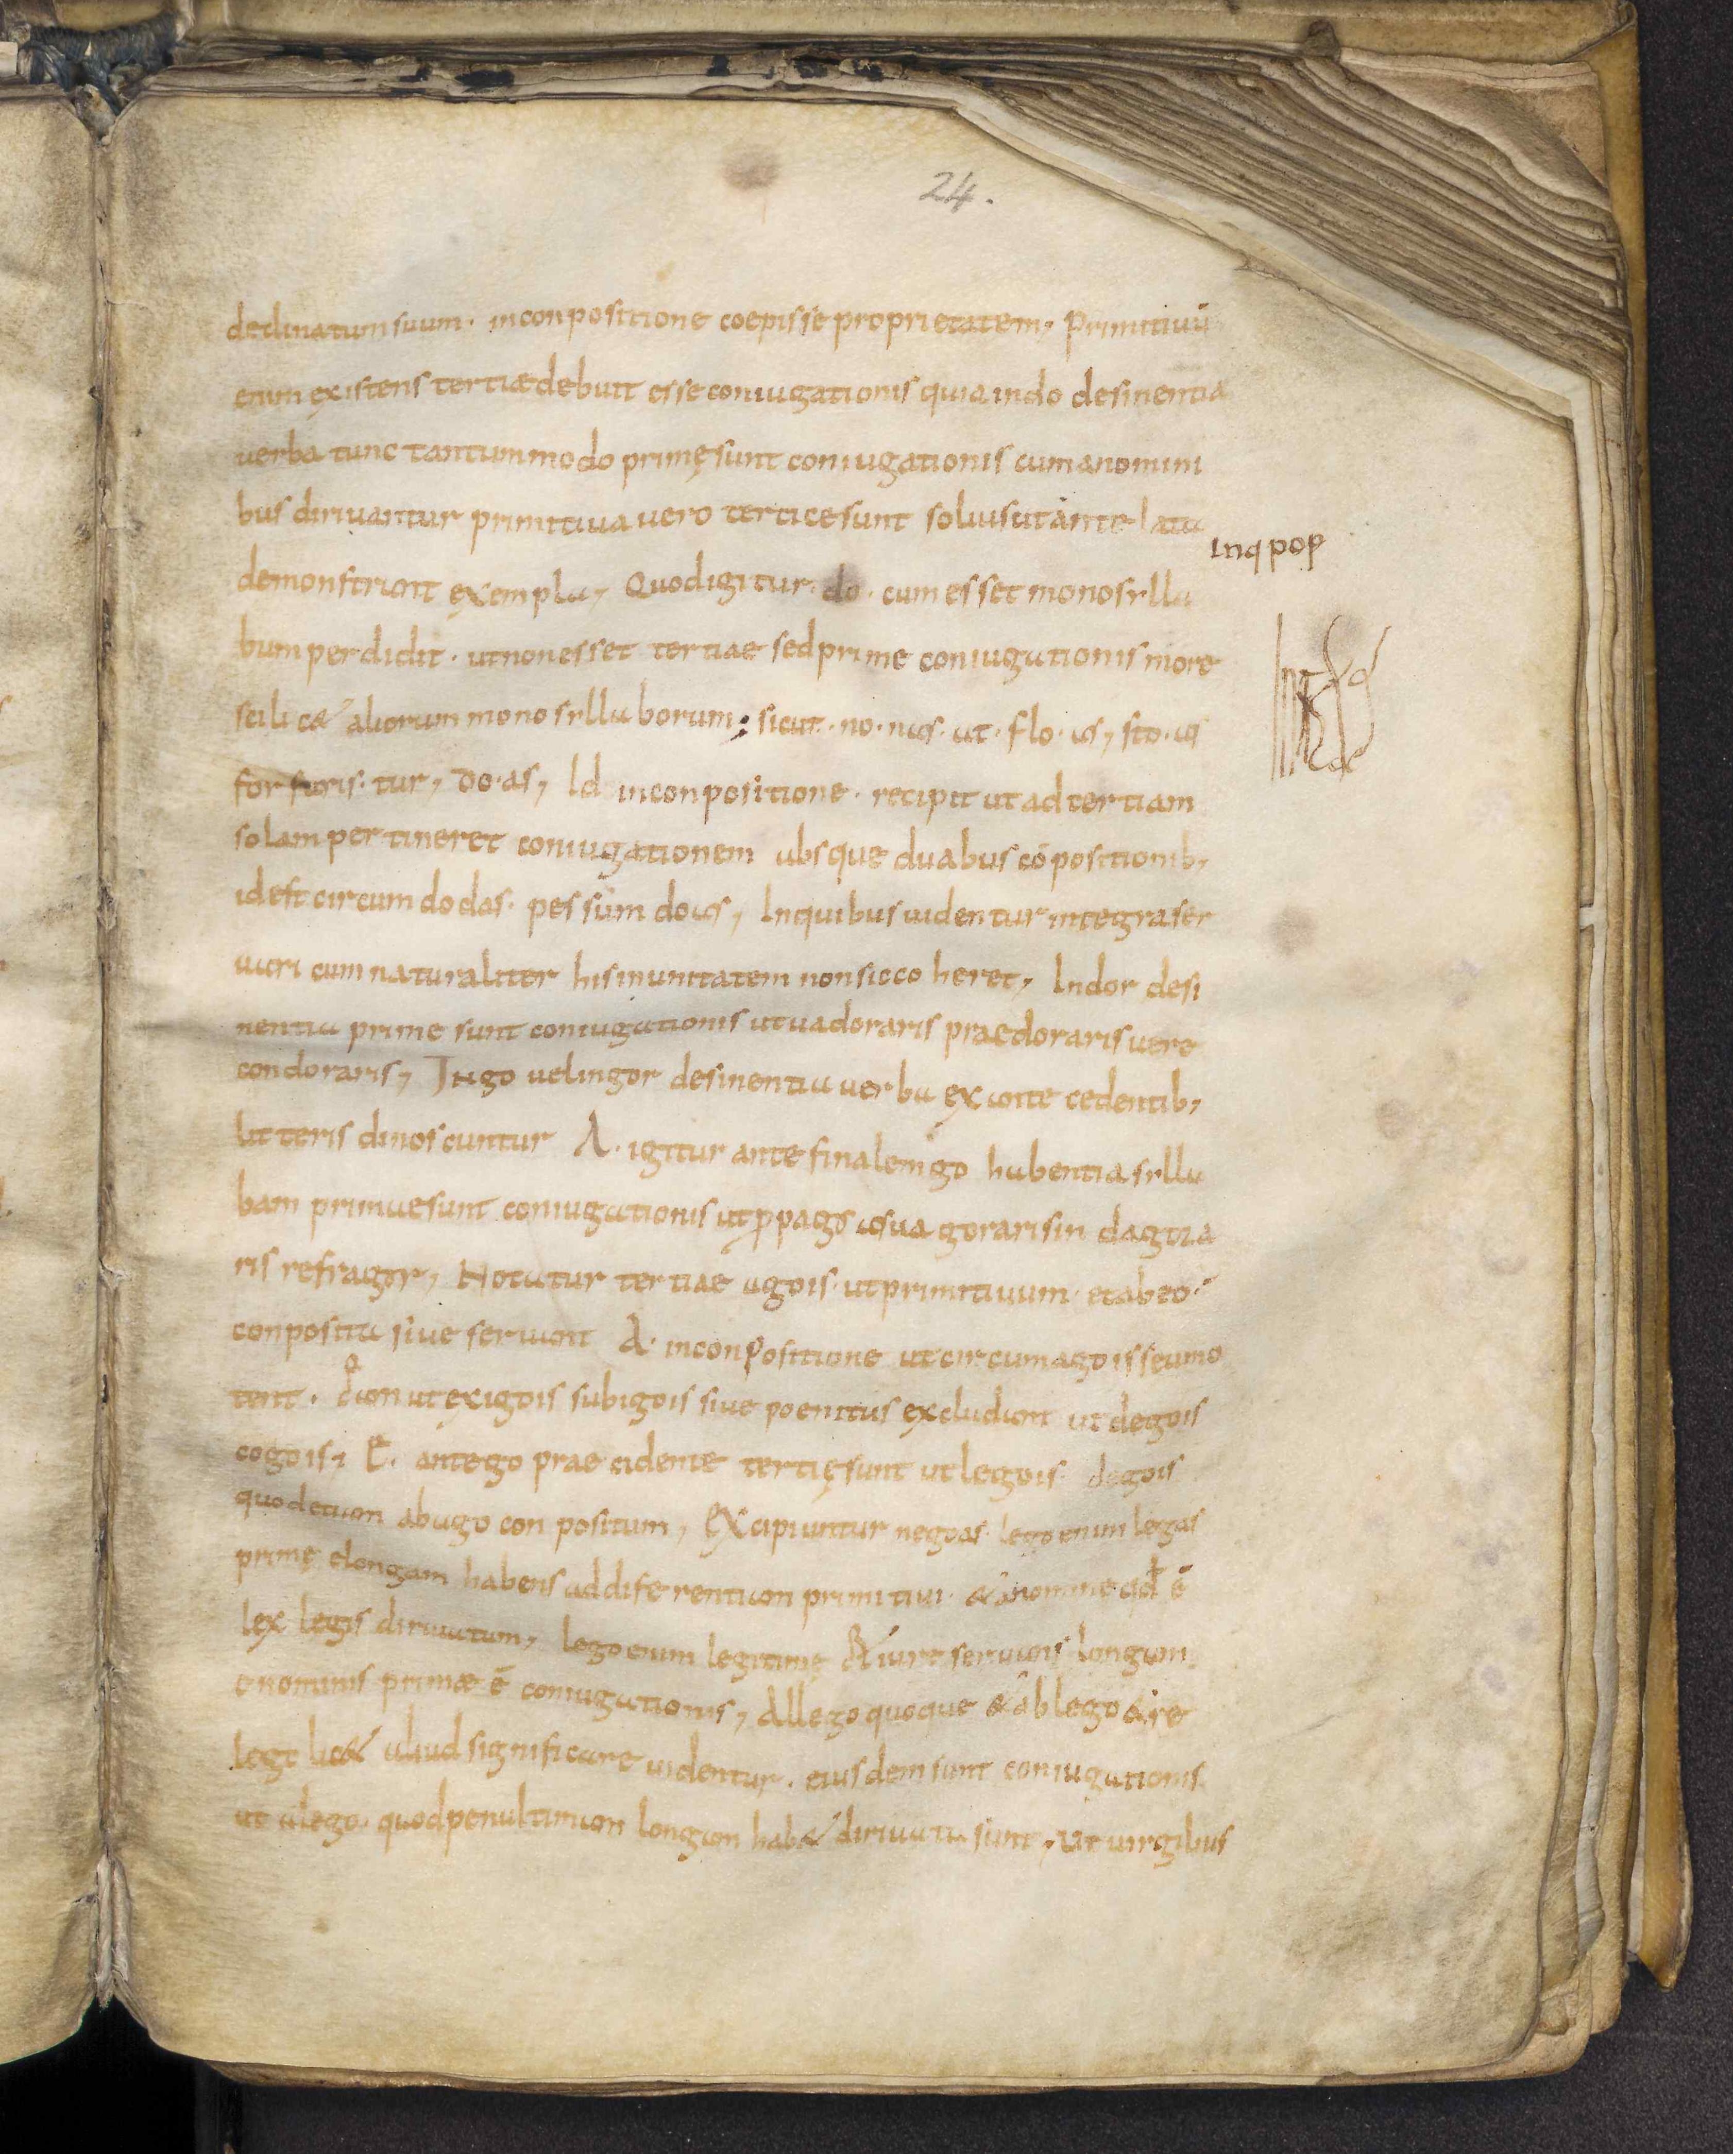 24.
declinatum suum · in conpositione coepisse proprietatem, Primitiuū
enim existens tertiæ debuit esse coniugationis quia in do desinentia
uerba tunc tantummodo primę sunt coniugationis cum a nomini
bus diriuantur primitiua uero tertice sunt sol ut ante lata
inq pop
demonstrant exempla, Quod igitur · do · cum esset monosylla
bum perdidit · ut non esset tertiae sed prime coniugationis more
scilic& aliorum monosyllaborum; sicut · no · nas · ut · flo · as, sto · as
for faris · tur, do · as, Id in conpositione · recipit ut ad tertiam
solam pertineret coniugationem absque duabus cōpositionib,
id est circumdo das · pessum do as, In quibus uidentur integra ser
uari cum naturaliter his in unitatem non sic coheret, In dor desi
nentia prime sunt coniugationis ut uador aris praedor aris uere
condor aris, In go uel in gor desinentia uerba ex antecedentib,
litteris dinoscuntur A · igitur ante finalem go habentia sylla
bam primae sunt coniugationis ut ꝓpago as uagor aris indagor a
ris refragor, Notatur tertiae ago is · ut primitiuum · et ab eo ·
conposita siue seruant A · in conpositione ut circumago is seu mo
tent · ut exigo is subigo is siue poenitus excludunt ut dego is
cogo is, E · ante go praecidente tertię sunt ut lego is · dego is
quod etiam ab ago conpositum, Excipiuntur nego as · lego enim legas
primę e longam habens ad diferentiam primitiui · & a nomine qđ ē
lex legis diriuatum, lego enim legitimę & iure seruans longam
e nominis primæ ē coniugationis, Allego quoque & ablego & re
lego lic& aliud significare uidentur · eiusdem sunt coniugationis
ut alego · quod penultimam longam hab& diriuata sunt, ut uirgibus